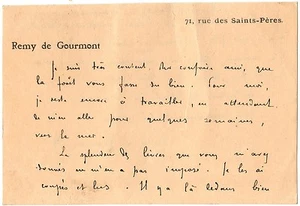 71, rue des Saints-Pères.
Remy de Gourmont
Je suis très content, cher confrère ami, que
la forêt vous fasse du bien. Pour moi,
je reste encore à travailler, en attendant
de m'en aller pour quelques semaines,
vers la mer.
La splendeur des livres que vous m'avez
donnés m'en a pas imposé. Je les ai
coupés et lus. Il y a là dedans bien